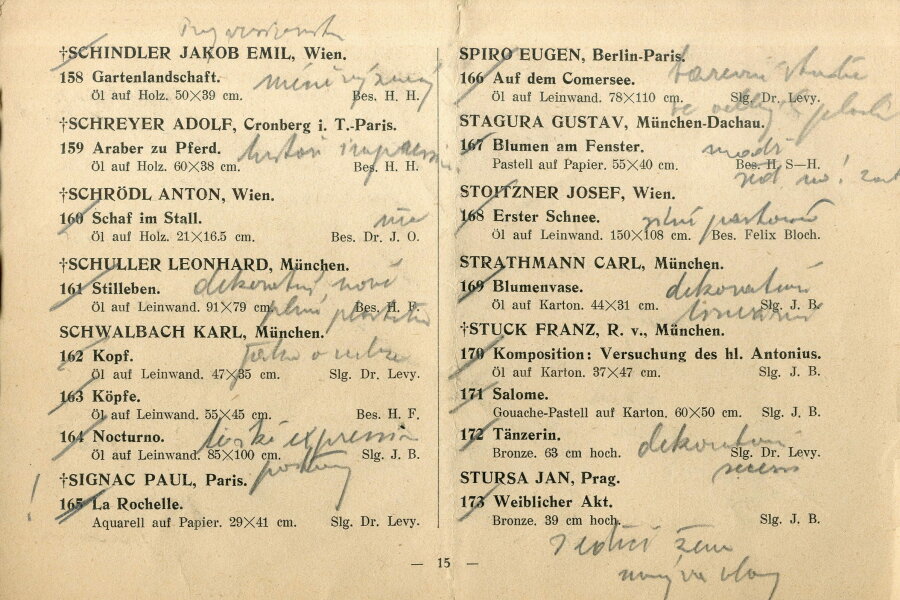 †SCHINDLER JAKOB EMIL, Wien.
158 Gartenlandschaft.
Öl auf Holz. 50×39 cm. Bes. H. H.
†SCHREYER ADOLF, Cronberg i. T.-Paris.
159 Araber zu Pferd.
Öl auf Holz. 60×38 cm. Bes. H. H.
†SCHRÖDL ANTON, Wien.
160 Schaf im Stall.
Öl auf Holz. 21×16.5 cm. Bes. Dr. J. O.
†SCHULLER LEONHARD, München.
161 Stilleben.
dekorativní nové
Öl auf Leinwand. 91×79 cm. Bes. H. F.
SCHWALBACH KARL, München.
162 Kopf.
Öl auf Leinwand. 47×35 cm. Slg. Dr. Levy.
163 Köpfe.
Öl auf Leinwand. 55×45 cm. Bes. H. F.
164 Nocturno.
Öl auf Leinwand. 85×100 cm. Slg. J. B.
†SIGNAC PAUL, Paris.
postavy
!
165 La Rochelle.
Aquarell auf Papier. 29×41 cm. Slg. Dr. Levy.
SPIRO EUGEN, Berlin-Paris.
barevná studie
166 Auf dem Comersee.
Öl auf Leinwand. 78×110 cm. Slg. Dr. Levy.
STAGURA GUSTAV, München-Dachau.
167 Blumen am Fenster.
modř
Pastell auf Papier. 55×40 cm. Bes. H. S—H.
STOITZNER JOSEF, Wien.
168 Erster Schnee.
silně pastosní
Öl auf Leinwand. 150×108 cm. Bes. Felix Bloch.
STRATHMANN CARL, München.
169 Blumenvase.
dekorativní
Öl auf Karton. 44×31 cm. Slg. J. B.
†STUCK FRANZ, R. v., München.
170 Komposition: Versuchung des hl. Antonius.
Öl auf Karton. 37×47 cm. Slg. J. B.
171 Salome.
Gouache-Pastell auf Karton. 60×50 cm. Slg. J. B.
172 Tänzerin.
dekorativní
Bronze. 63 cm hoch. Slg. Dr. Levy.
secese
STURSA JAN, Prag.
173 Weiblicher Akt.
Bronze. 39 cm hoch. Slg. J. B.
sedící žena
myje vlasy
— 15 —